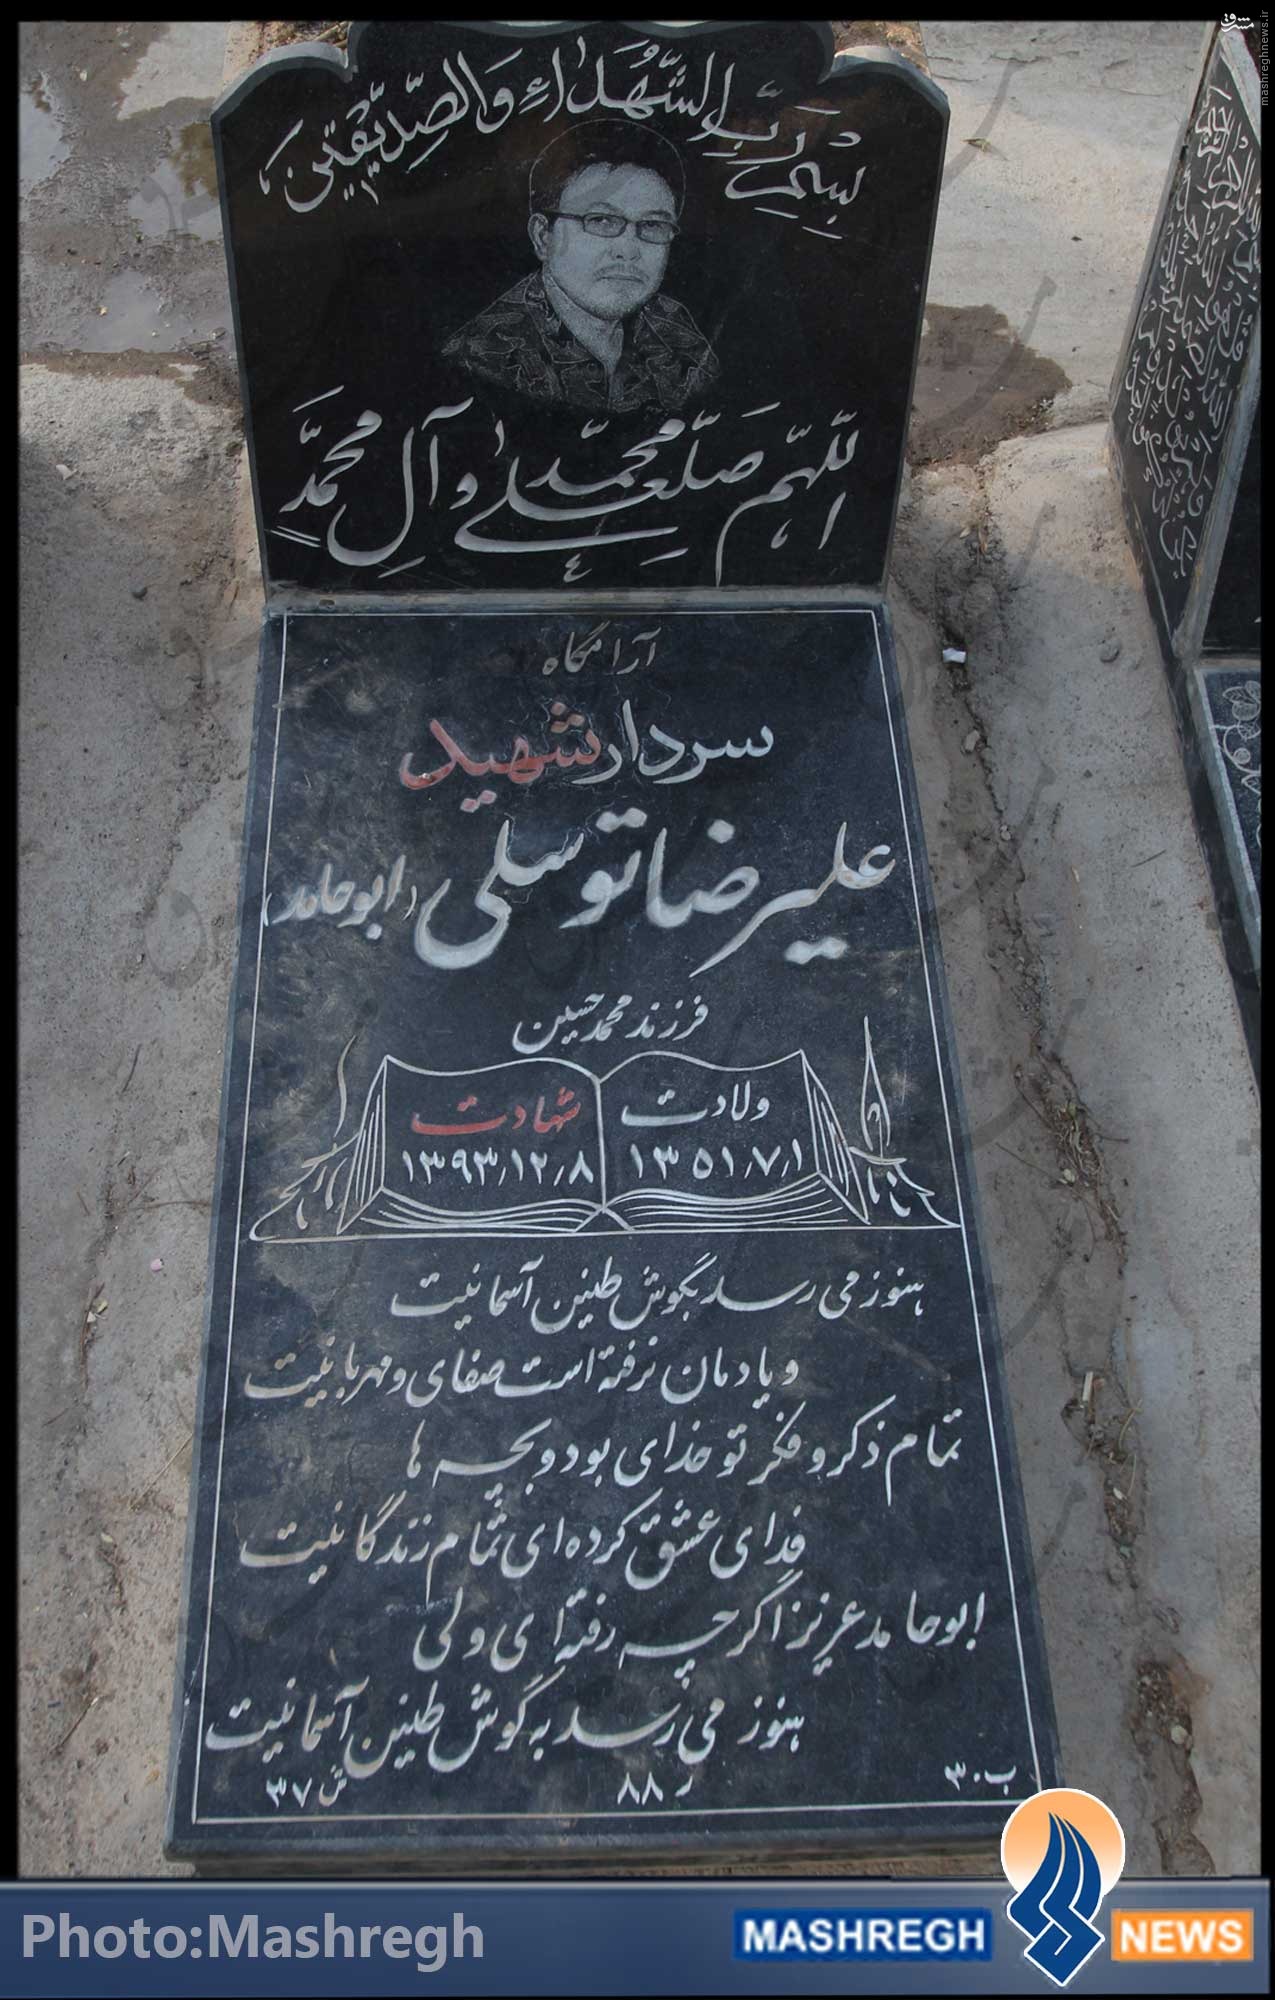 مشرق
mashreghnews.ir
بسم رب الشهداء والصدیقین
اللهم صل علی محمد و آل محمد
آرامگاه
سردار شهید
علیرضا توسلی (ابوحامد)
فرزند محمد حسین
ولادت
۱۳۵۱/۷/۱
شهادت
۱۳۹۳/۱۲/۸
هنوز می رسد بگوش طنین آسمانیت
و یادمان نرفته است صفای و مهربانیت
تمام ذکر و فکر تو خدای بود و بچه ها
فدای عشق کرده ای تمام زندگانیت
ابوحامد عزیز اگر چه رفته ای ولی
هنوز می رسد به گوش طنین آسمانیت
ب ۳۰ ر ۸۸ ش ۳۷
Photo:Mashregh
MASHREGH NEWS